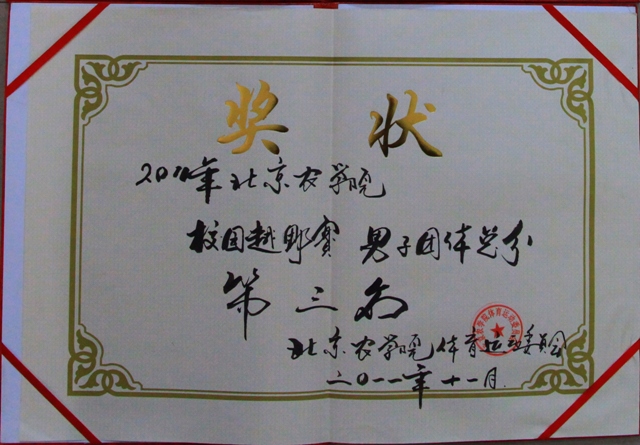 奖状
2011年北京农学院
校园越野赛 男子团体总分
第三名
北京农学院体育运动委员会
二〇一一年十一月